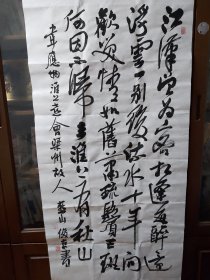 江漢曾為客相逢每醉還
浮雲一別後流水十年間
歡笑情如舊蕭疏鬢已斑
何因不歸去淮上有秋山
韋應物淮上喜會梁州故人